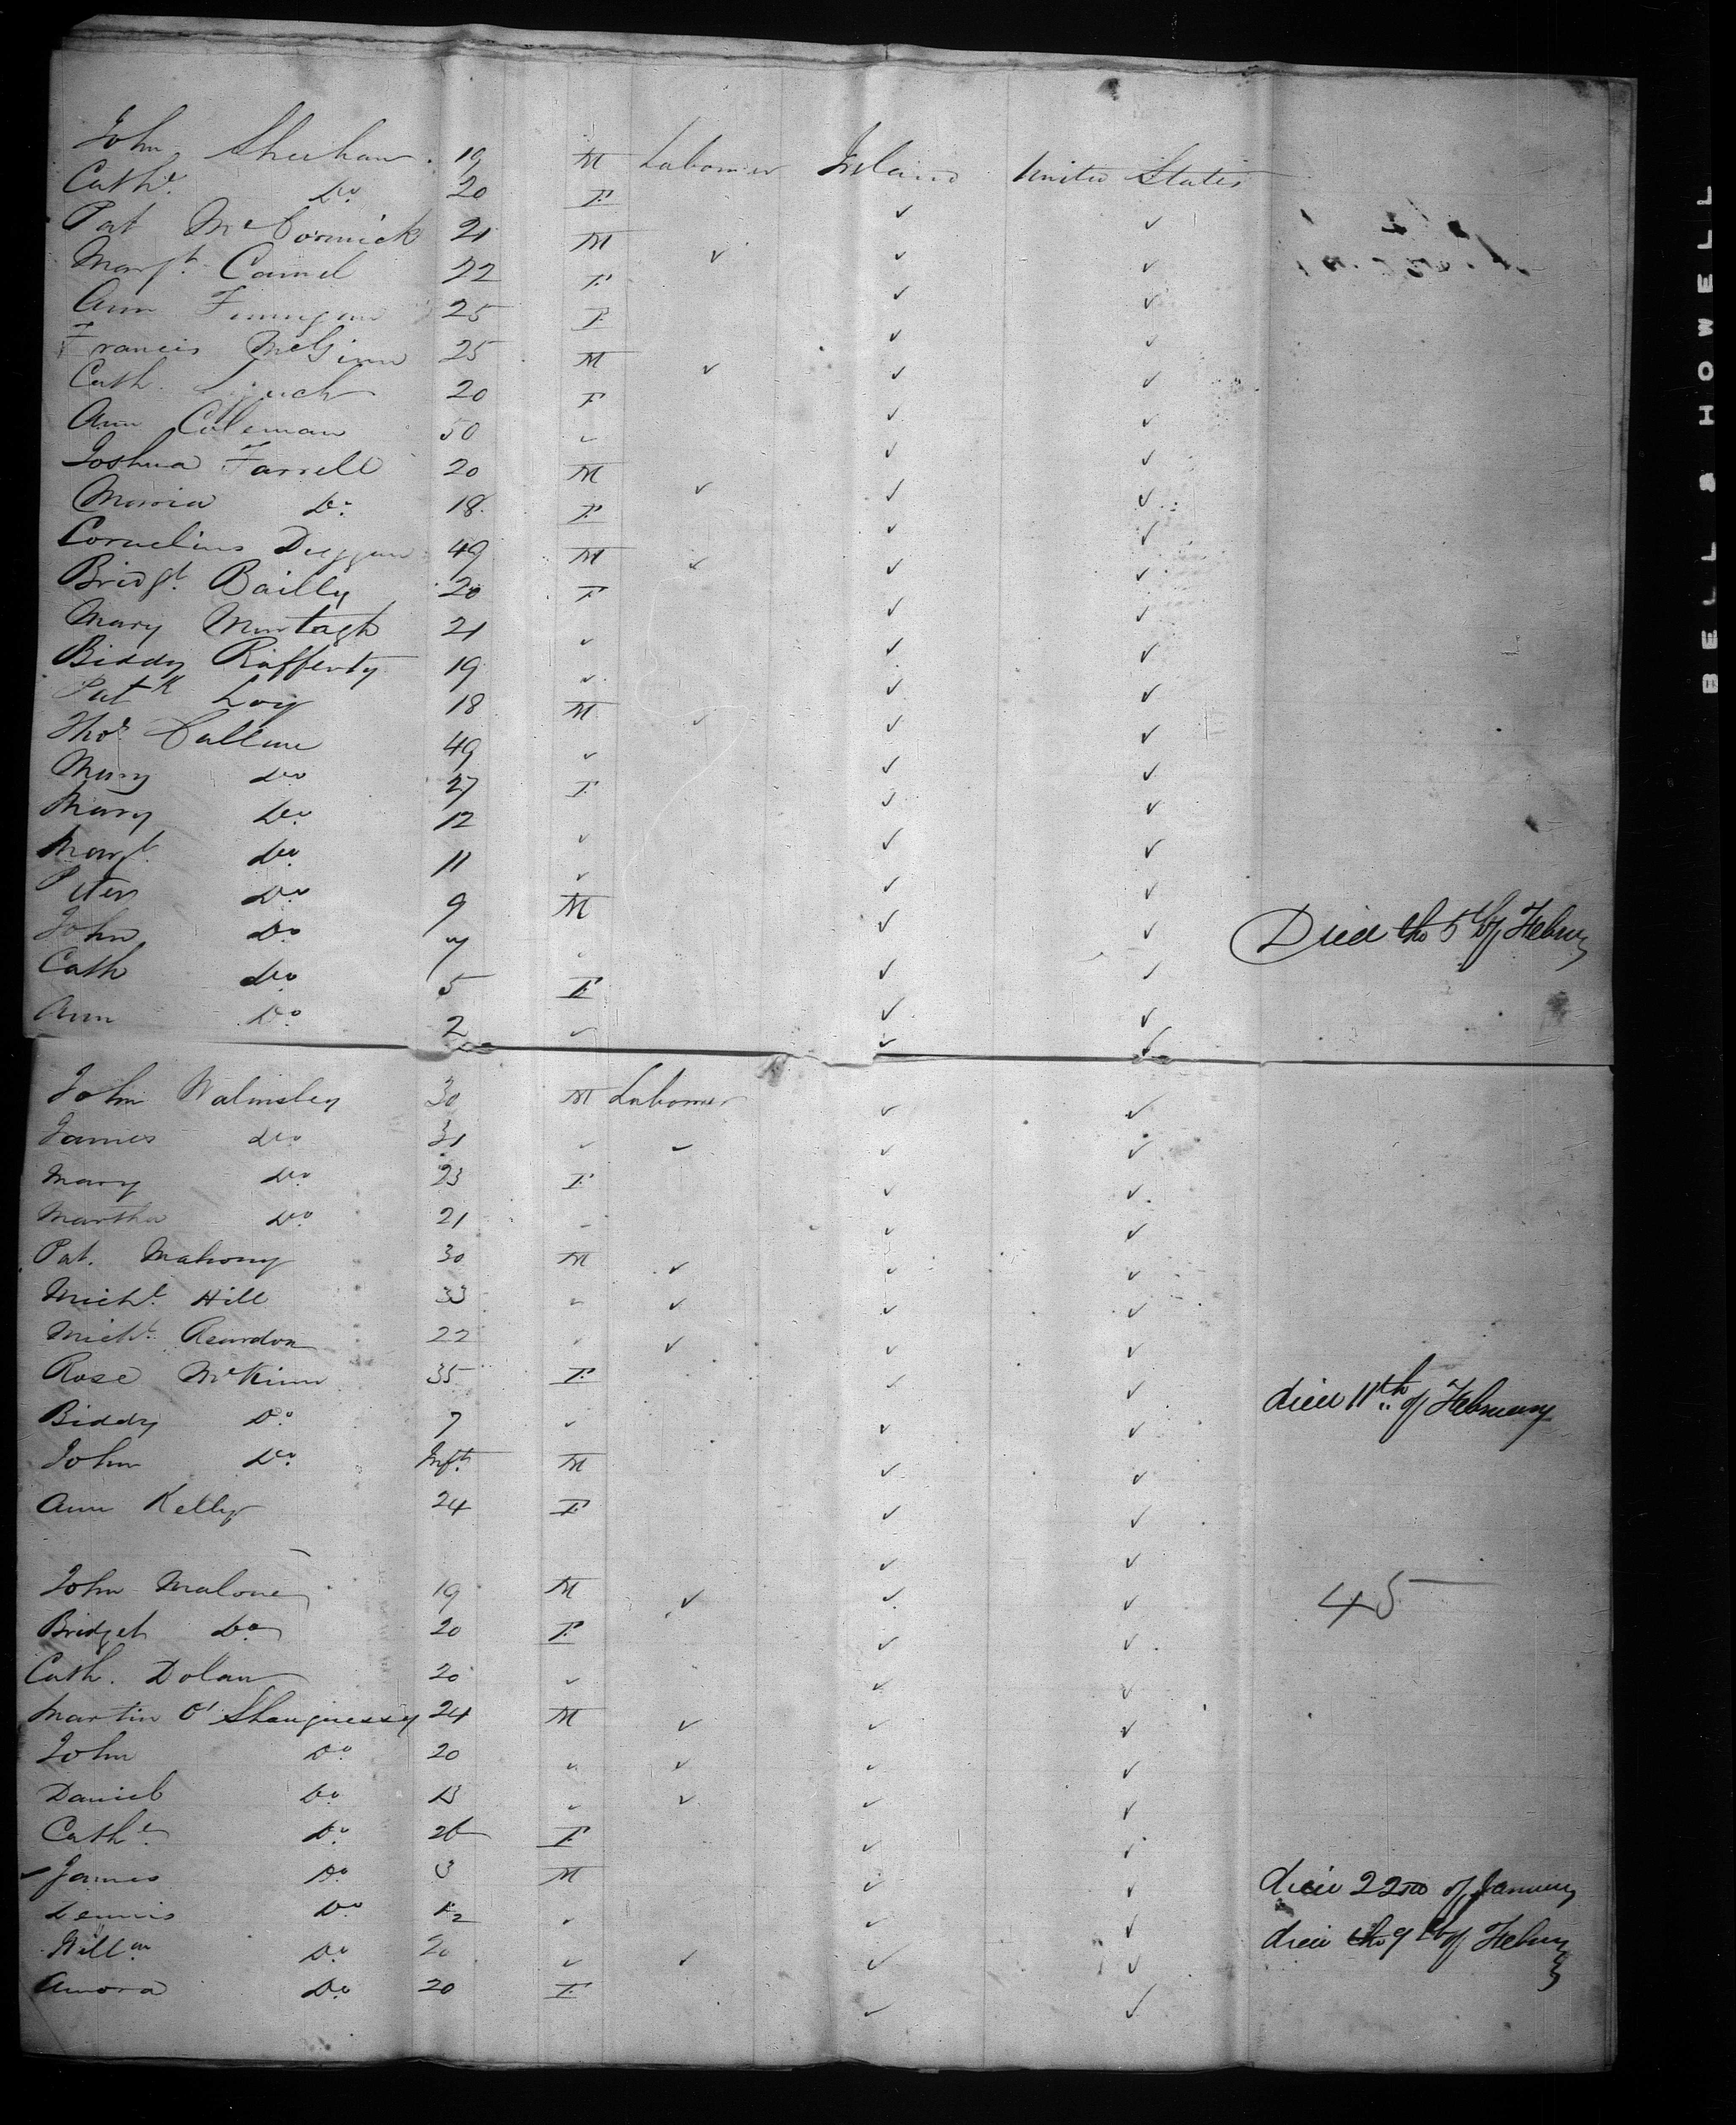 John Sheehan 19 M Labourer Ireland United States
Cathe Do 20 F ✓ ✓
Pat McCormick 21 M ✓ ✓ ✓
Margt Camel 22 F ✓ ✓
Ann Finnigan 25 F ✓ ✓
Francis McGinn 25 M ✓ ✓ ✓
Cath. Lynch 20 F ✓ ✓
Ann Coleman 50 ✓ ✓ ✓
Joshua Farrell 20 M ✓ ✓ ✓
Maria Do 18 F ✓ ✓
Cornelius Duggan 49 M ✓ ✓ ✓
Bridgt Bailly 20 F ✓ ✓
Mary Murtagh 21 ✓ ✓ ✓
Biddy Rafferty 19 ✓ ✓ ✓
Patk Loy 18 M ✓ ✓ ✓
Thos Callan 49 ✓ ✓ ✓
Mary Do 27 F ✓ ✓
Mary Do 12 ✓ ✓ ✓
Margt Do 11 ✓ ✓ ✓
Peter Do 9 M ✓ ✓ Died the 5th of Febury
John Do 7 ✓ ✓
Cath Do 5 F ✓ ✓
Ann Do 2 ✓ ✓ ✓
John Walmsley 30 M Labourer ✓ ✓
James Do 31 ✓ ✓ ✓ ✓
Mary Do 23 F ✓ ✓
Martha Do 21 ✓ ✓
Pat. Mahony 30 M ✓ ✓ ✓
Michl Hill 33 ✓ ✓ ✓ ✓
Michl Reardon 22 ✓ ✓ ✓
Rose McKinn 35 F ✓ ✓ died 11th of February
Biddy Do 7 ✓ ✓ ✓
John Do Inft M ✓ ✓
Ann Kelly 24 F ✓ ✓
John Maloney 19 M ✓ ✓ ✓ 45
Bridget Do 20 F ✓ ✓
Cath. Dolan 20 ✓ ✓ ✓
Martin O'Shaugnessy 24 M ✓ ✓ ✓
John Do 20 ✓ ✓ ✓ ✓
Daniel Do ✓ ✓ ✓ ✓
Cathe Do 26 F ✓ ✓
James Do 3 M ✓ ✓ died 22nd of January
Dennis Do ✓ ✓ ✓ died the 9th of Febury
Willm Do 20 ✓ ✓ ✓ ✓
Anora Do 20 F ✓ ✓
BELL & HOWELL